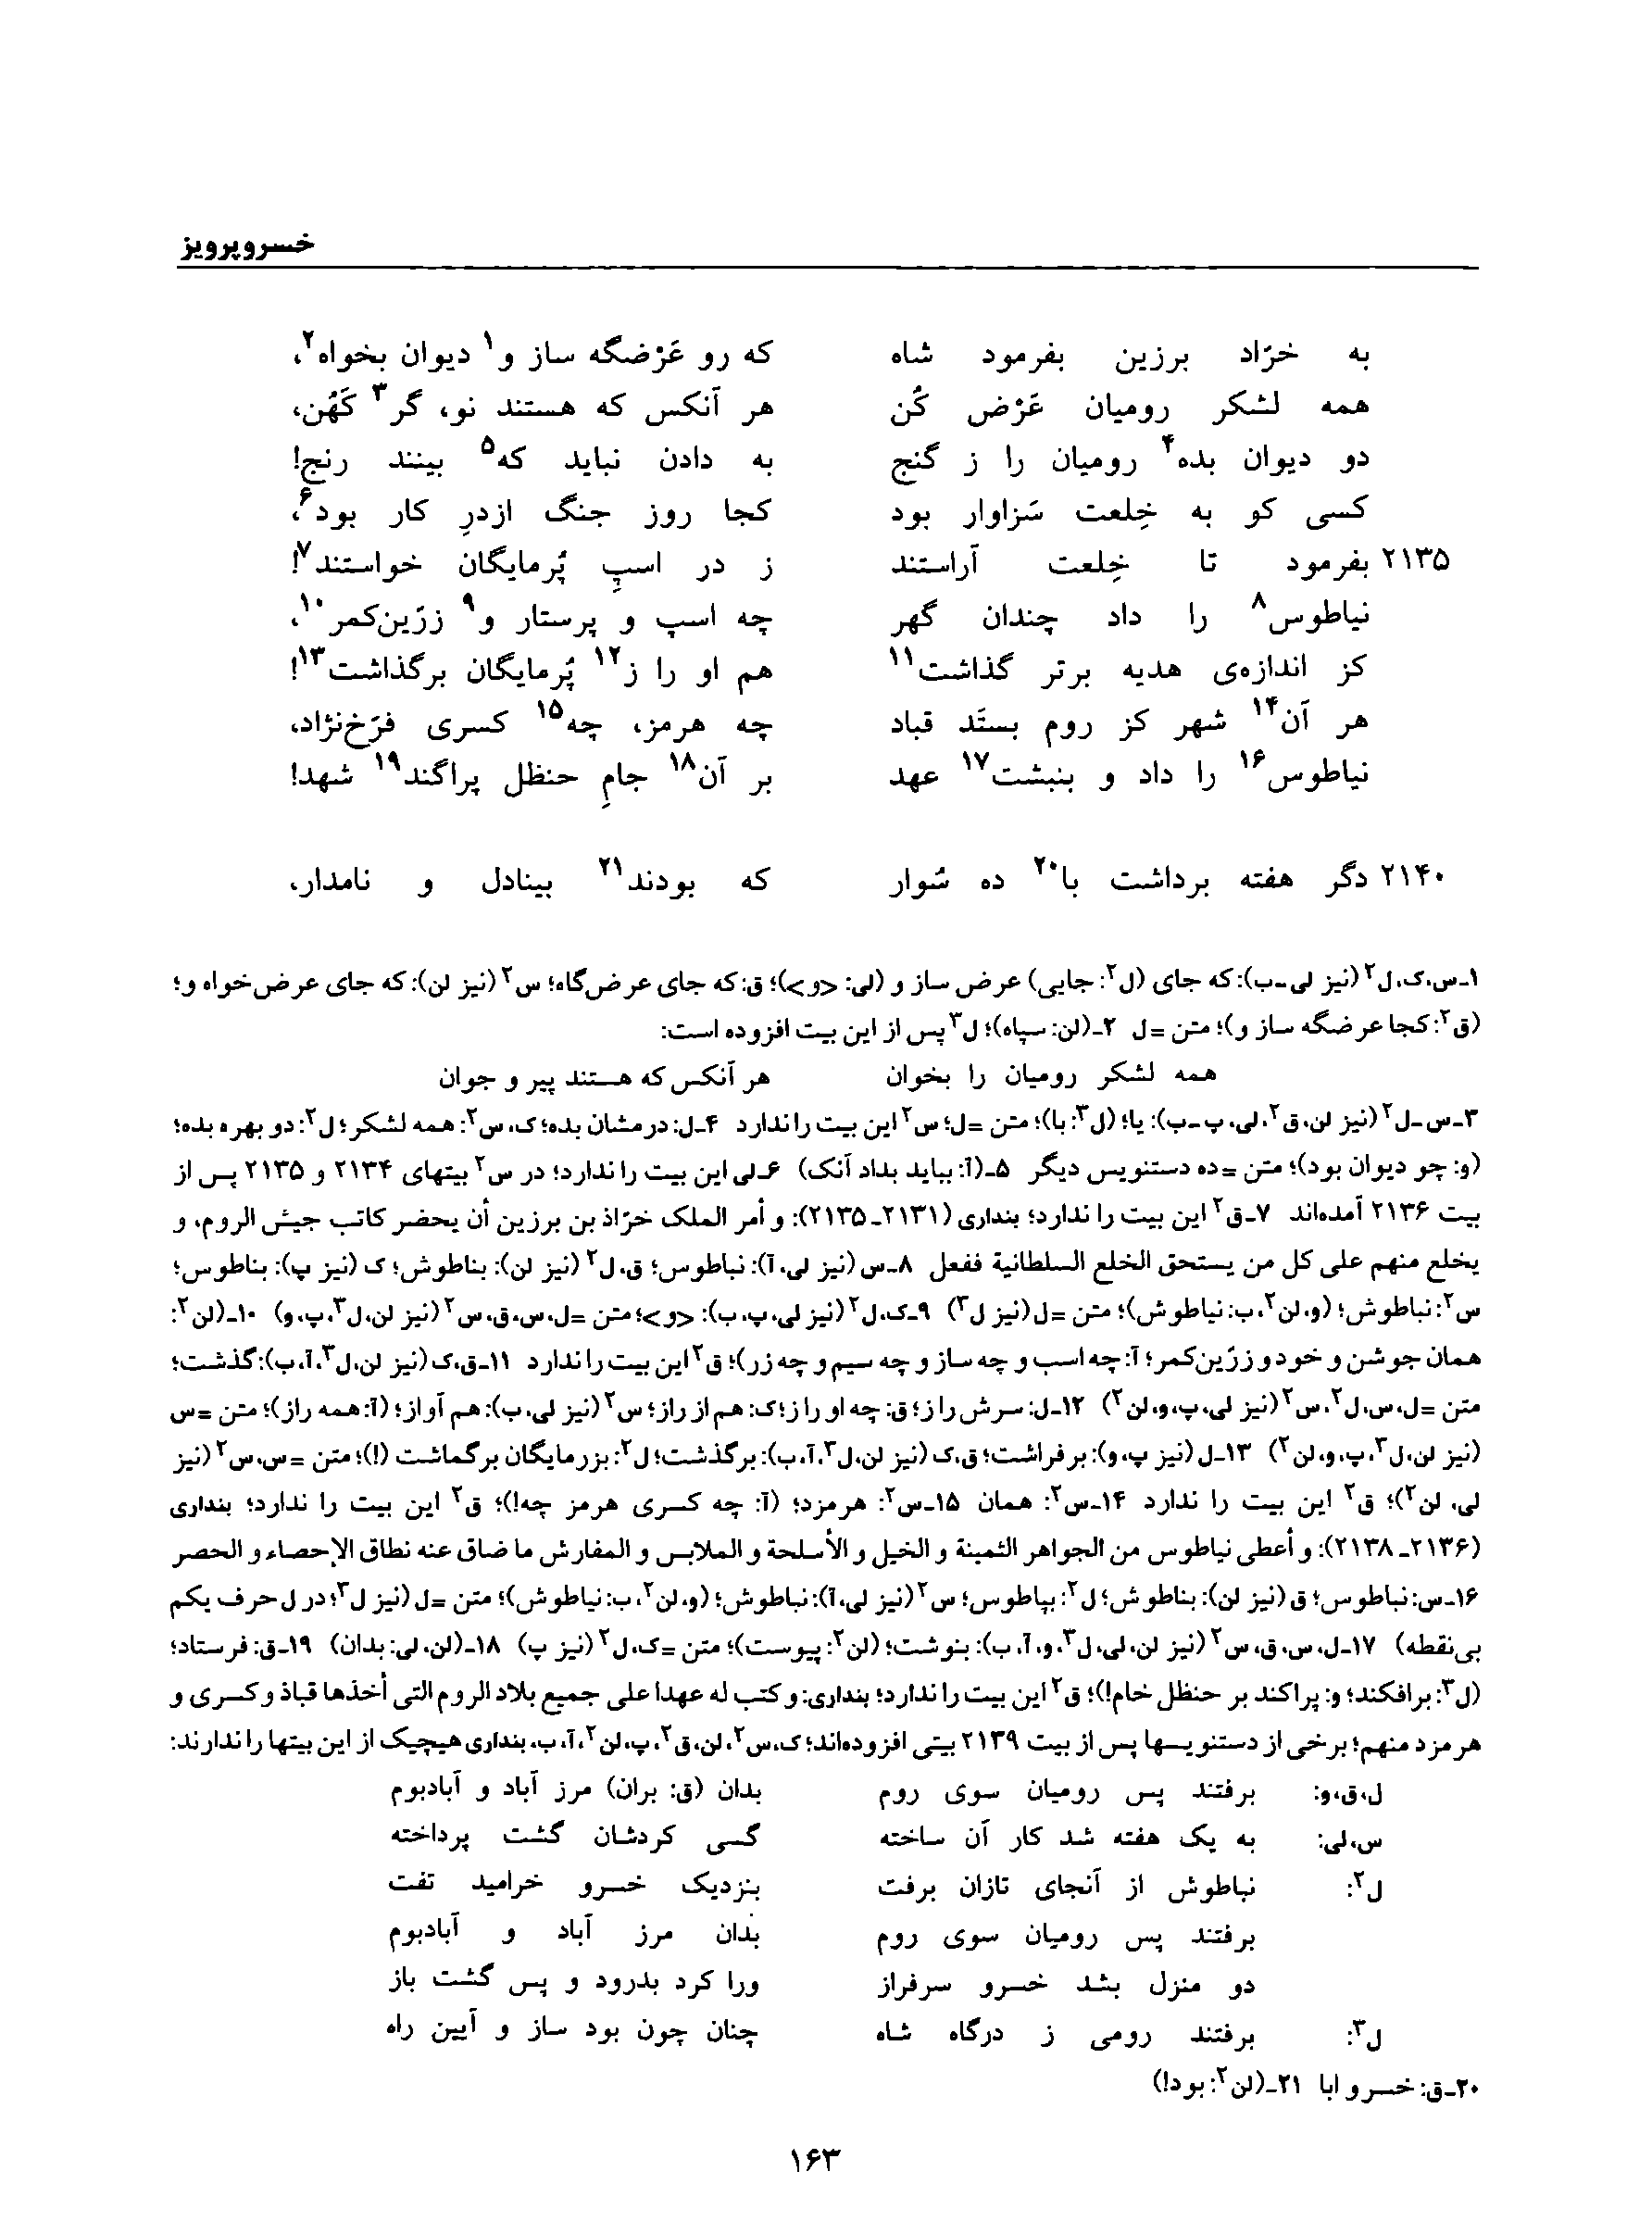 خسروپرویز
به خرّاد برزین بفرمود شاه که رو عَرْضگه ساز و۱ دیوان بخواه۲،
همه لشکر رومیان عَرْض کُن هر آنکس که هستند نو، گر۳ کَهُن،
دو دیوان بده۴ رومیان را ز گنج به دادن نباید که۵ بینند رنج!
کسی کو به خِلعت سَزاوار بود کجا روز جنگ ازدرِ کار بود۶،
۲۱۳۵ بفرمود تا خِلعت آراستند ز در اسپِ پُرمایگان خواستند۷!
نیاطوس۸ را داد چندان گهر چه اسپ و پرستار و۹ زرّین‌کمر۱۰،
کز اندازه‌ی هدیه برتر گذاشت۱۱ هم او را ز۱۲ پُرمایگان برگذاشت۱۳!
هر آن۱۴ شهر کز روم بستَد قباد چه هرمز، چه۱۵ کسری فرّخ‌نژاد،
نیاطوس۱۶ را داد و بنبشت۱۷ عهد بر آن۱۸ جامِ حنظل پراگند۱۹ شهد!
۲۱۴۰ دگر هفته برداشت با۲۰ ده سُوار که بودند۲۱ بینادل و نامدار،
۱ـ س، ک، ل۲ (نیز لی ـ ب): که جای (ل۲: جایی) عرض ساز و (لی: <و>)؛ ق: که جای عرض‌گاه؛ س۲ (نیز لن): که جای عرض‌خواه و؛
(ق۲: کجا عرضگه ساز و)؛ متن = ل ۲ـ (لن: سپاه)؛ ل۳ پس از این بیت افزوده است:
همه لشکر رومیان را بخوان هر آنکس که هستند پیر و جوان
۳ـ س ـ ل۲ (نیز لن، ق۲، لی، پ ـ ب): یا؛ (ل۳: با)؛ متن = ل؛ س۲ این بیت را ندارد ۴ـ ل: درمشان بده؛ ک، س۲: همه لشکر؛ ل۲: دو بهره بده؛
(و: چو دیوان بود)؛ متن = ده دستنویس دیگر ۵ـ (آ: بباید بداد آنک) ۶ـ لی این بیت را ندارد؛ در س۲ بیتهای ۲۱۳۴ و ۲۱۳۵ پس از
بیت ۲۱۳۶ آمده‌اند ۷ـ ق۲ این بیت را ندارد؛ بنداری (۲۱۳۱ـ ۲۱۳۵): و أمر الملک خرّاذ بن برزین أن یحضر کاتب جیش الروم، و
یخلع منهم علی کل من یستحق الخلع السلطانیة ففعل ۸ـ س (نیز لی، آ): نباطوس؛ ق، ل۲ (نیز لن): بناطوش؛ ک (نیز پ): بناطوس؛
س۲: نباطوش؛ (و، لن۲، ب: نیاطوش)؛ متن = ل (نیز ل۳) ۹ـ ک، ل۲ (نیز لی، پ، ب): <و>؛ متن = ل، س، ق، س۲ (نیز لن، ل۳، پ، و) ۱۰ـ (لن۲:
همان جوشن و خود و زرّین‌کمر؛ آ: چه اسب و چه ساز و چه سیم و چه زر)؛ ق۲ این بیت را ندارد ۱۱ـ ق، ک (نیز لن، ل۳، آ، ب): گذشت؛
متن = ل، س، ل۲، س۲ (نیز لی، پ، و، لن۲) ۱۲ـ ل: سرش را ز؛ ق: چه او را ز؛ ک: هم از راز؛ س۲ (نیز لی، ب): هم آواز؛ (آ: همه راز)؛ متن = س
(نیز لن، ل۳، پ، و، لن۲) ۱۳ـ ل (نیز پ، و): برفراشت؛ ق، ک (نیز لن، ل۳، آ، ب): برگذشت؛ ل۲: بزرمایگان برگماشت (!)؛ متن = س، س۲ (نیز
لی، لن۲)؛ ق۲ این بیت را ندارد ۱۴ـ س۲: همان ۱۵ـ س۲: هرمزد؛ (آ: چه کسری هرمز چه!)؛ ق۲ این بیت را ندارد؛ بنداری
(۲۱۳۶ـ ۲۱۳۸): و أعطی نیاطوس من الجواهر الثمینة و الخیل و الأسلحة و الملابس و المفارش ما ضاق عنه نطاق الإحصاء و الحصر
۱۶ـ س: نباطوس؛ ق (نیز لن): بناطوش؛ ل۲: بیاطوس؛ س۲ (نیز لی، آ): نباطوش؛ (و، لن۲، ب: نیاطوش)؛ متن = ل (نیز ل۳؛ در ل حرف یکم
بی‌نقطه) ۱۷ـ ل، س، ق، س۲ (نیز لن، لی، ل۳، و، آ، ب): بنوشت؛ (لن۲: پیوست)؛ متن = ک، ل۲ (نیز پ) ۱۸ـ (لن، لی: بدان) ۱۹ـ ق: فرستاد؛
(ل۳: برافکند؛ و: پراکند بر حنظل خام!)؛ ق۲ این بیت را ندارد؛ بنداری: و کتب له عهدا علی جمیع بلاد الروم التی أخذها قباذ و کسری و
هرمزد منهم؛ برخی از دستنویسها پس از بیت ۲۱۳۹ بیتی افزوده‌اند؛ ک، س۲، لن، ق۲، پ، لن۲، آ، ب، بنداری هیچیک از این بیتها را ندارند:
ل، ق، و: برفتند پس رومیان سوی روم بدان (ق: بران) مرز آباد و آبادبوم
س، لی: به یک هفته شد کار آن ساخته گسی کردشان گشت پرداخته
ل۲: نباطوش از آنجای تازان برفت بنزدیک خسرو خرامید تفت
برفتند پس رومیان سوی روم بدان مرز آباد و آبادبوم
دو منزل بشد خسرو سرفراز ورا کرد بدرود و پس گشت باز
ل۳: برفتند رومی ز درگاه شاه چنان چون بود ساز و آیین راه
۲۰ـ ق: خسرو ابا ۲۱ـ (لن۲: بود!)
۱۶۳